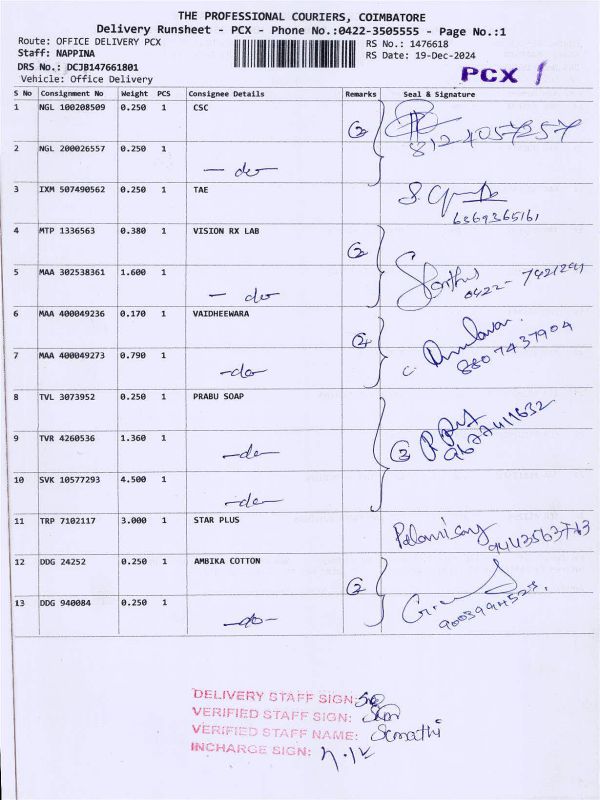 THE PROFESSIONAL COURIERS, COIMBATORE
Delivery Runsheet - PCX - Phone No.:0422-3505555 - Page No.:1
Route: OFFICE DELIVERY PCX
Staff: NAPPINA
DRS No.: DCJB147661801
Vehicle: Office Delivery
RS No.: 1476618
RS Date: 19-Dec-2024
PCX 1
S No Consignment No Weight PCS Consignee Details Remarks Seal & Signature
1 NGL 100208509 0.250 1 CSC
② 8124057257
2 NGL 200026557 0.250 1 — do —
3 IXM 507490562 0.250 1 TAE
6369365161
4 MTP 1336563 0.380 1 VISION RX LAB
②
5 MAA 302538361 1.600 1 — do
0422-
6 MAA 400049236 0.170 1 VAIDHEEWARA
② 8807437904
7 MAA 400049273 0.790 1 —do—
8 TVL 3073952 0.250 1 PRABU SOAP
9 TVR 4260536 1.360 1 —do—
③
10 SVK 10577293 4.500 1 —do—
11 TRP 7102117 3.000 1 STAR PLUS
Palanisamy
12 DDG 24252 0.250 1 AMBIKA COTTON
②
13 DDG 940084 0.250 1 —do—
DELIVERY STAFF SIGN:
VERIFIED STAFF SIGN:
VERIFIED STAFF NAME: Sumathi
INCHARGE SIGN: